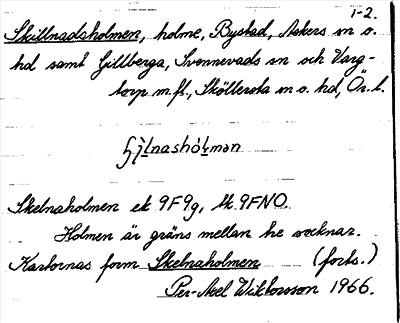 1-2.
Skillnadsholmen, holme, Bystad, Askers sn o.
hd samt Gillberga, Svennevads sn och Varg-
torp m.fl., Sköllersta sn o. hd, Ör. l.
Skelnaholmen ek 9F9g, tk. 9FNO.
Holmen är gräns mellan tre socknar.
Kartornas form Skelnaholmen (forts.)
Per-Axel Wiktorsson 1966.